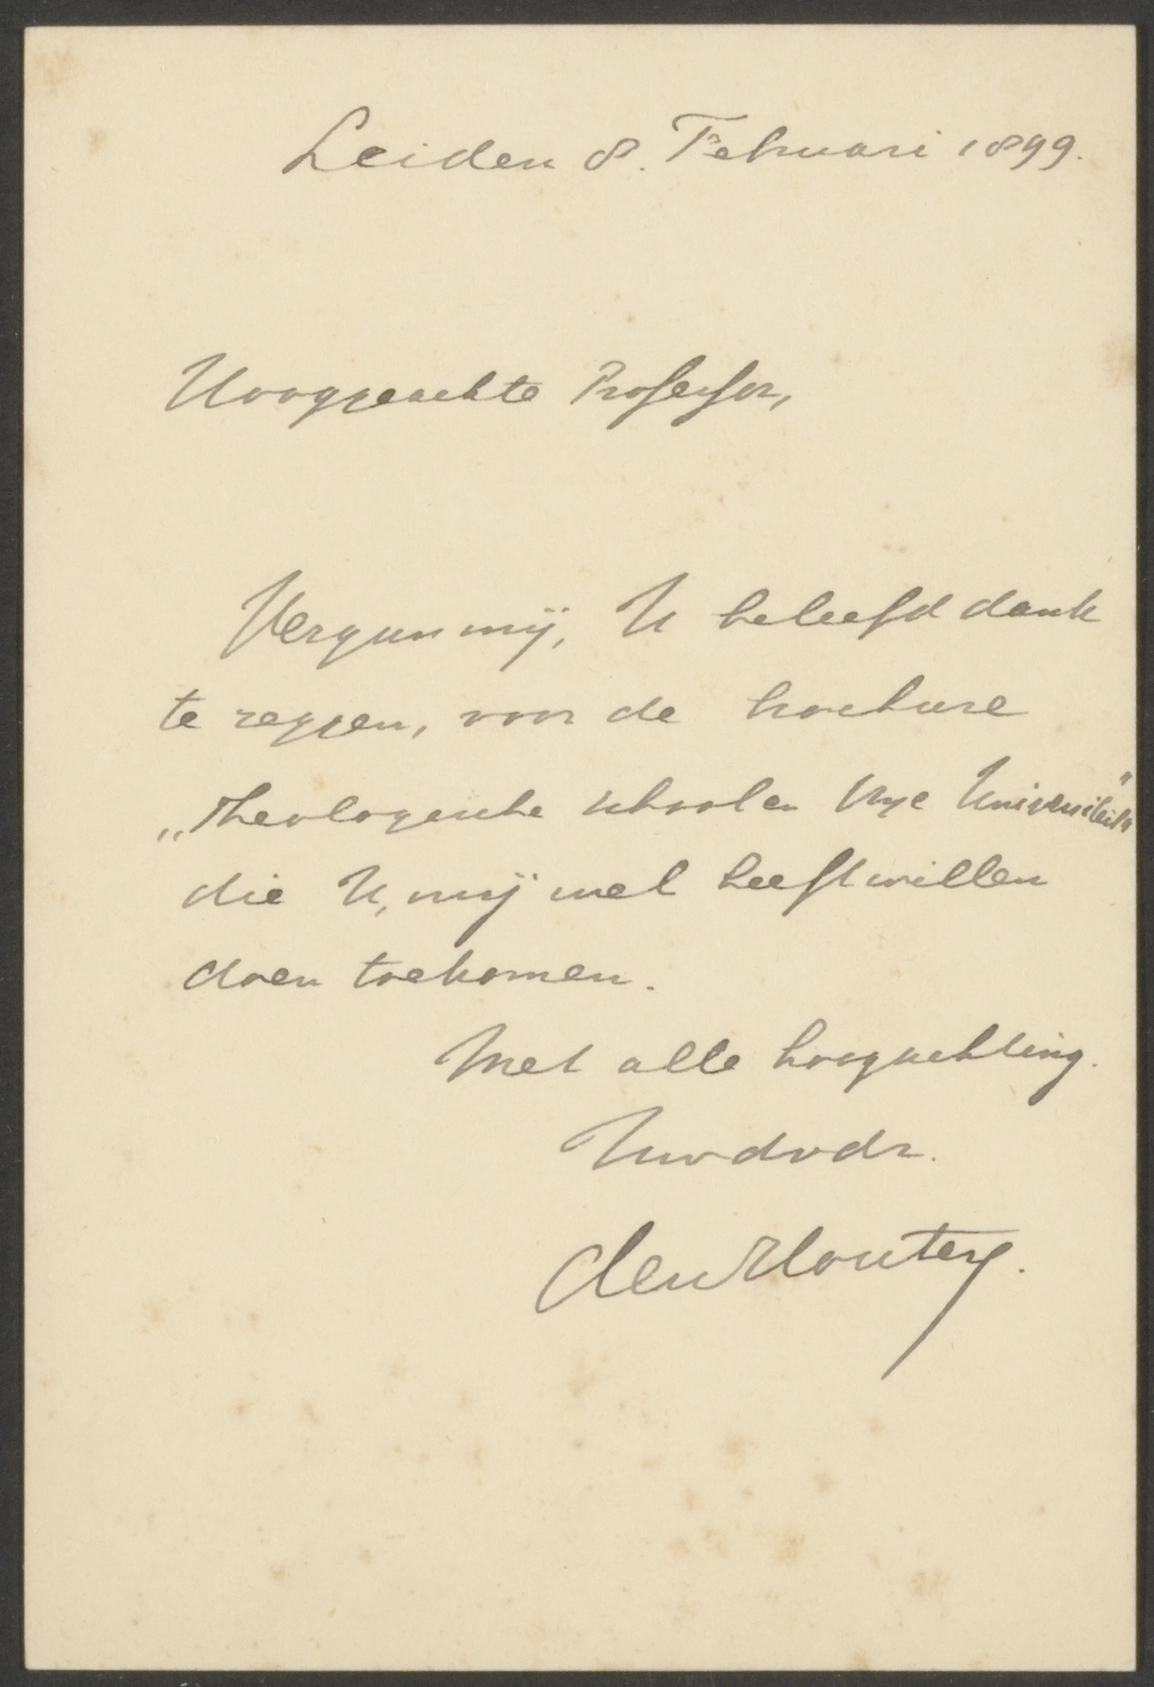 Leiden 8. Februari 1899.
Hooggeachte Professor,
Vergun mij, U beleefd dank
te zeggen, voor de brochure
„Theologische school en Vrije Universiteit"
die U, mij wel heeft willen
doen toekomen.
Met alle hoogachting.
Uwdvdr.